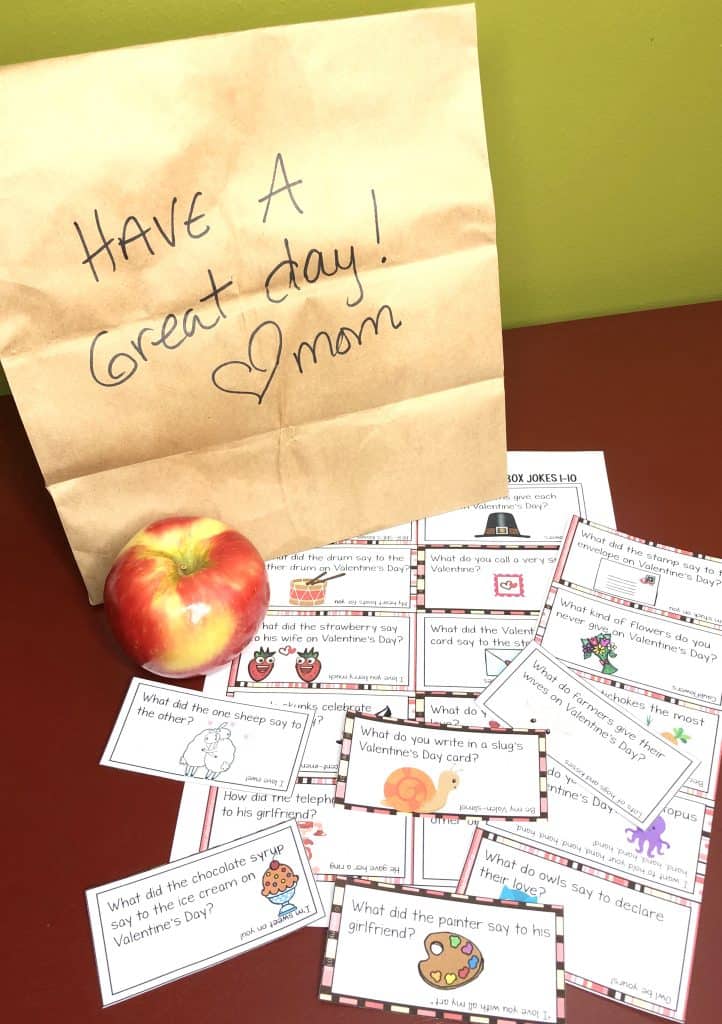 HAVE A
Great day!
♡ mom
BOX JOKES 1-10
give each
Valentine's Day?
did the drum say to the
other drum on Valentine's Day?
My heart beats for you
What do you call a very
Valentine?
What did the stamp say to
envelope on Valentine's Day?
stuck on you
What kind of flowers do you
never give on Valentine's Day?
Cauliflowers
What did the strawberry say
to his wife on Valentine's Day?
I love you berry much
What did the Valent
card say to the
What do farmers give their
wives on Valentine's Day?
Lots of hogs and kisses
chokes the most
What did the one sheep say to
the other?
I love ewe!
skunks celebrate
What do you write in a slug's
Valentine's Day card?
Be my Valen-slime!
What do y
love?
do y
entine's Day
opus
I want to hold your hand, hand, hand, hand, hand, hand
How did the teleph
to his girlfriend?
He gave her a ring
other
What do owls say to declare
their love?
Owl be yours!
What did the chocolate syrup
say to the ice cream on
Valentine's Day?
I'm sweet on you!
What did the painter say to his
girlfriend?
"I love you with all my art"